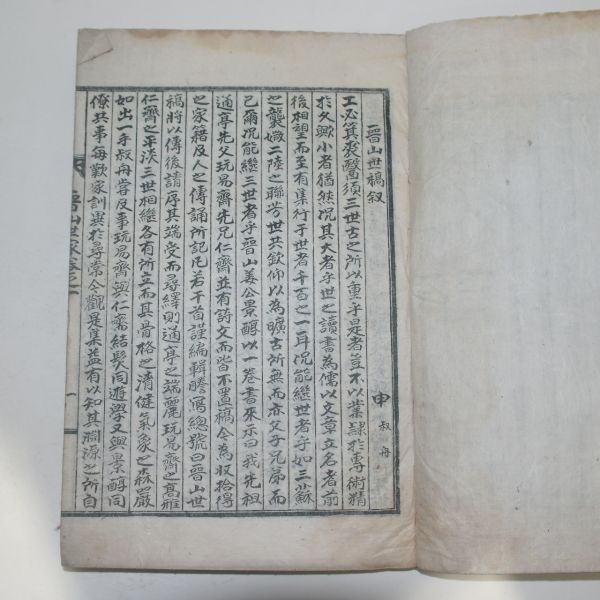 晋山世稿叙
申叔舟
工必箕裘醫須三世古之所以重乎是者豈不以業隷於專術精
於久歟小者猶然況其大者乎世之讀書為儒以文章立名者前
後相望而至有集行于世者千百之一耳況能繼世者乎如三蘇
之襲媺二陸之聯芳世共欽仰以為曠古所無而亦父子兄弟而
已爾況能繼三世者乎晉山姜公景醇以一卷書來示曰我先祖
通亭先父玩易齋先兄仁齋並有詩文而皆不置稿今為収拾得
之家籍及人之傳誦所記凡若干首謹編輯謄寫總號曰晉山世
稿將以傳後請序其端受而尋繹則通亭之端麗玩易齋之高雅
仁齋之平淡三世相繼各有所立而其骨格之清健氣象之森嚴
如出一手叔舟嘗及事玩易齋與仁齋結髮同遊學又與景醇同
僚共事每歎家訓異於尋常今觀是集益有以知其淵源之所自
晋山世稿卷之一
一